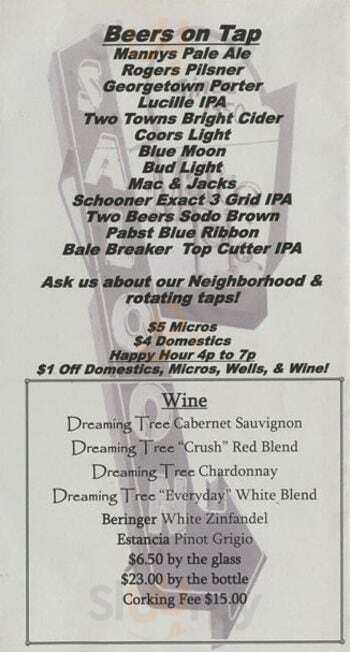 Beers on Tap
Mannys Pale Ale
Rogers Pilsner
Georgetown Porter
Lucille IPA
Two Towns Bright Cider
Coors Light
Blue Moon
Bud Light
Mac & Jacks
Schooner Exact 3 Grid IPA
Two Beers Sodo Brown
Pabst Blue Ribbon
Bale Breaker Top Cutter IPA
Ask us about our Neighborhood &
rotating taps!
$5 Micros
$4 Domestics
Happy Hour 4p to 7p
$1 Off Domestics, Micros, Wells, & Wine!
Wine
Dreaming Tree Cabernet Sauvignon
Dreaming Tree "Crush" Red Blend
Dreaming Tree Chardonnay
Dreaming Tree "Everyday" White Blend
Beringer White Zinfandel
Estancia Pinot Grigio
$6.50 by the glass
$23.00 by the bottle
Corking Fee $15.00
SALOON